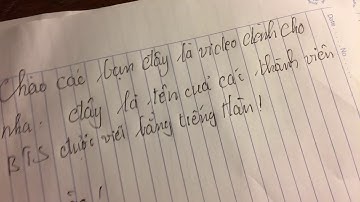 Chào các bạn đây là video dành cho
nha. đây là tên của các thành viên
BTS được viết bằng tiếng Hàn!